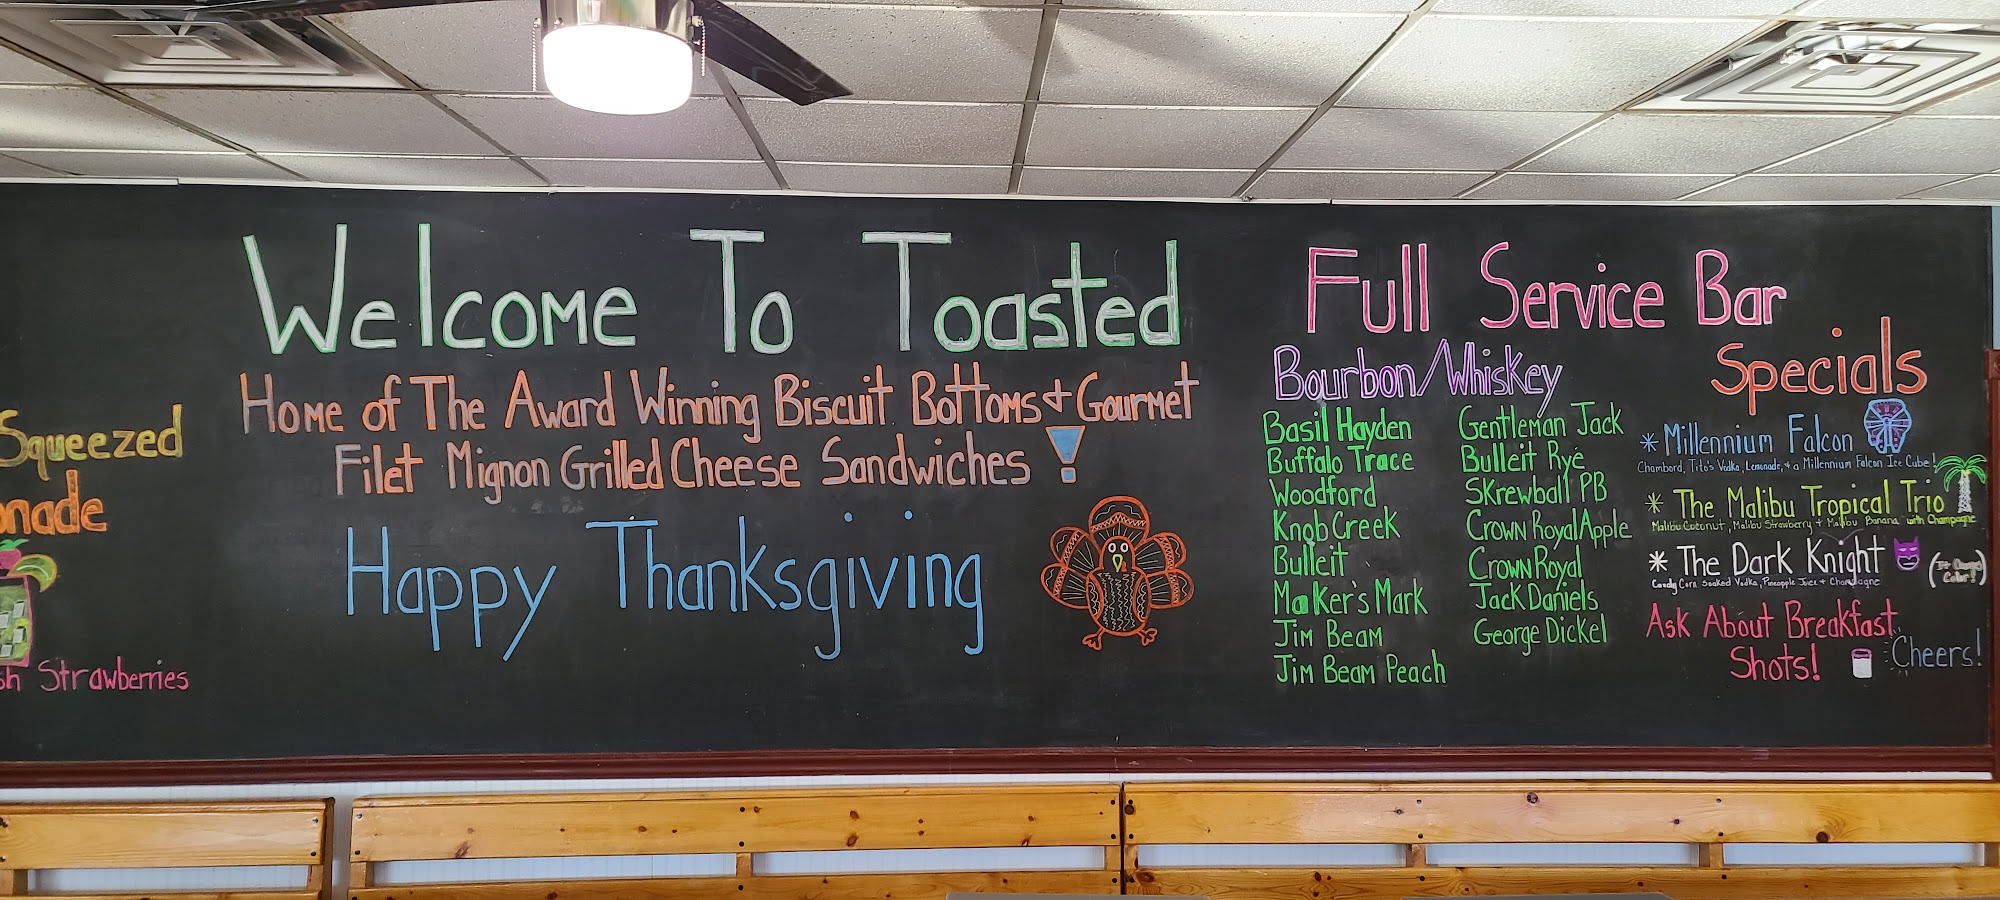 Squeezed
Strawberries
Welcome To Toasted
Home of The Award Winning Biscuit Bottoms + Gourmet
Filet Mignon Grilled Cheese Sandwiches!
Happy Thanksgiving
Full Service Bar
Bourbon/Whiskey
Basil Hayden
Buffalo Trace
Woodford
Knob Creek
Bulleit
Maker's Mark
Jim Beam
Jim Beam Peach
Gentleman Jack
Bulleit Rye
Skrewball PB
Crown Royal Apple
Crown Royal
Jack Daniels
George Dickel
Specials
* Millennium Falcon
Chambord, Tito's Vodka, Lemonade, + a Millennium Falcon Ice Cube!
* The Malibu Tropical Trio
Malibu Coconut, Malibu Strawberry + Malibu Banana with Champagne
* The Dark Knight
Candy Corn Soaked Vodka, Pineapple Juice + Champagne
Color!)
Ask About Breakfast
Shots!
Cheers!